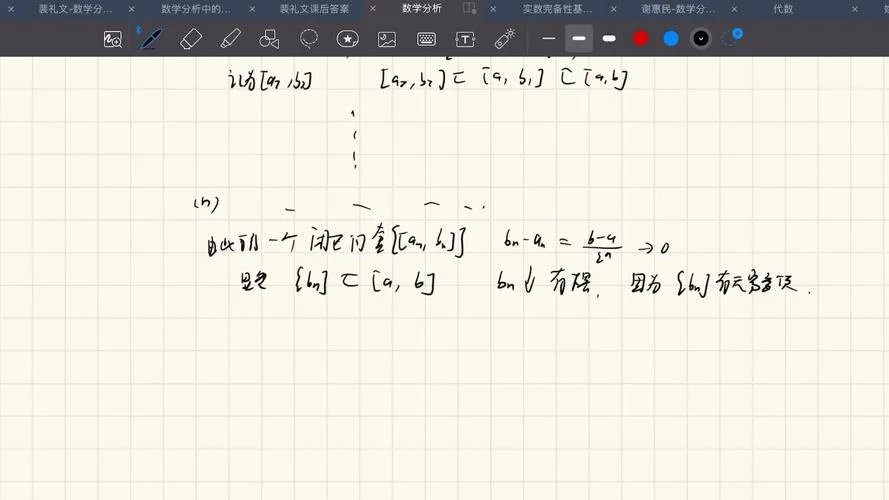 裴礼文-数学分... 数学分析中的... 裴礼文课后答案 数学分析 实数完备性基... 谢惠民-数学分... 代数
记为[a₂, b₂] [a₂, b₂] ⊂ [a₁, b₁] ⊂ [a, b]
(n)
由此可得一个闭区间套{[aₙ, bₙ]} bₙ-aₙ = (b-a)/2ⁿ → 0
显然 {bₙ} ⊂ [a, b] bₙ↓ 有界, 因为 {bₙ} 有无穷多项.